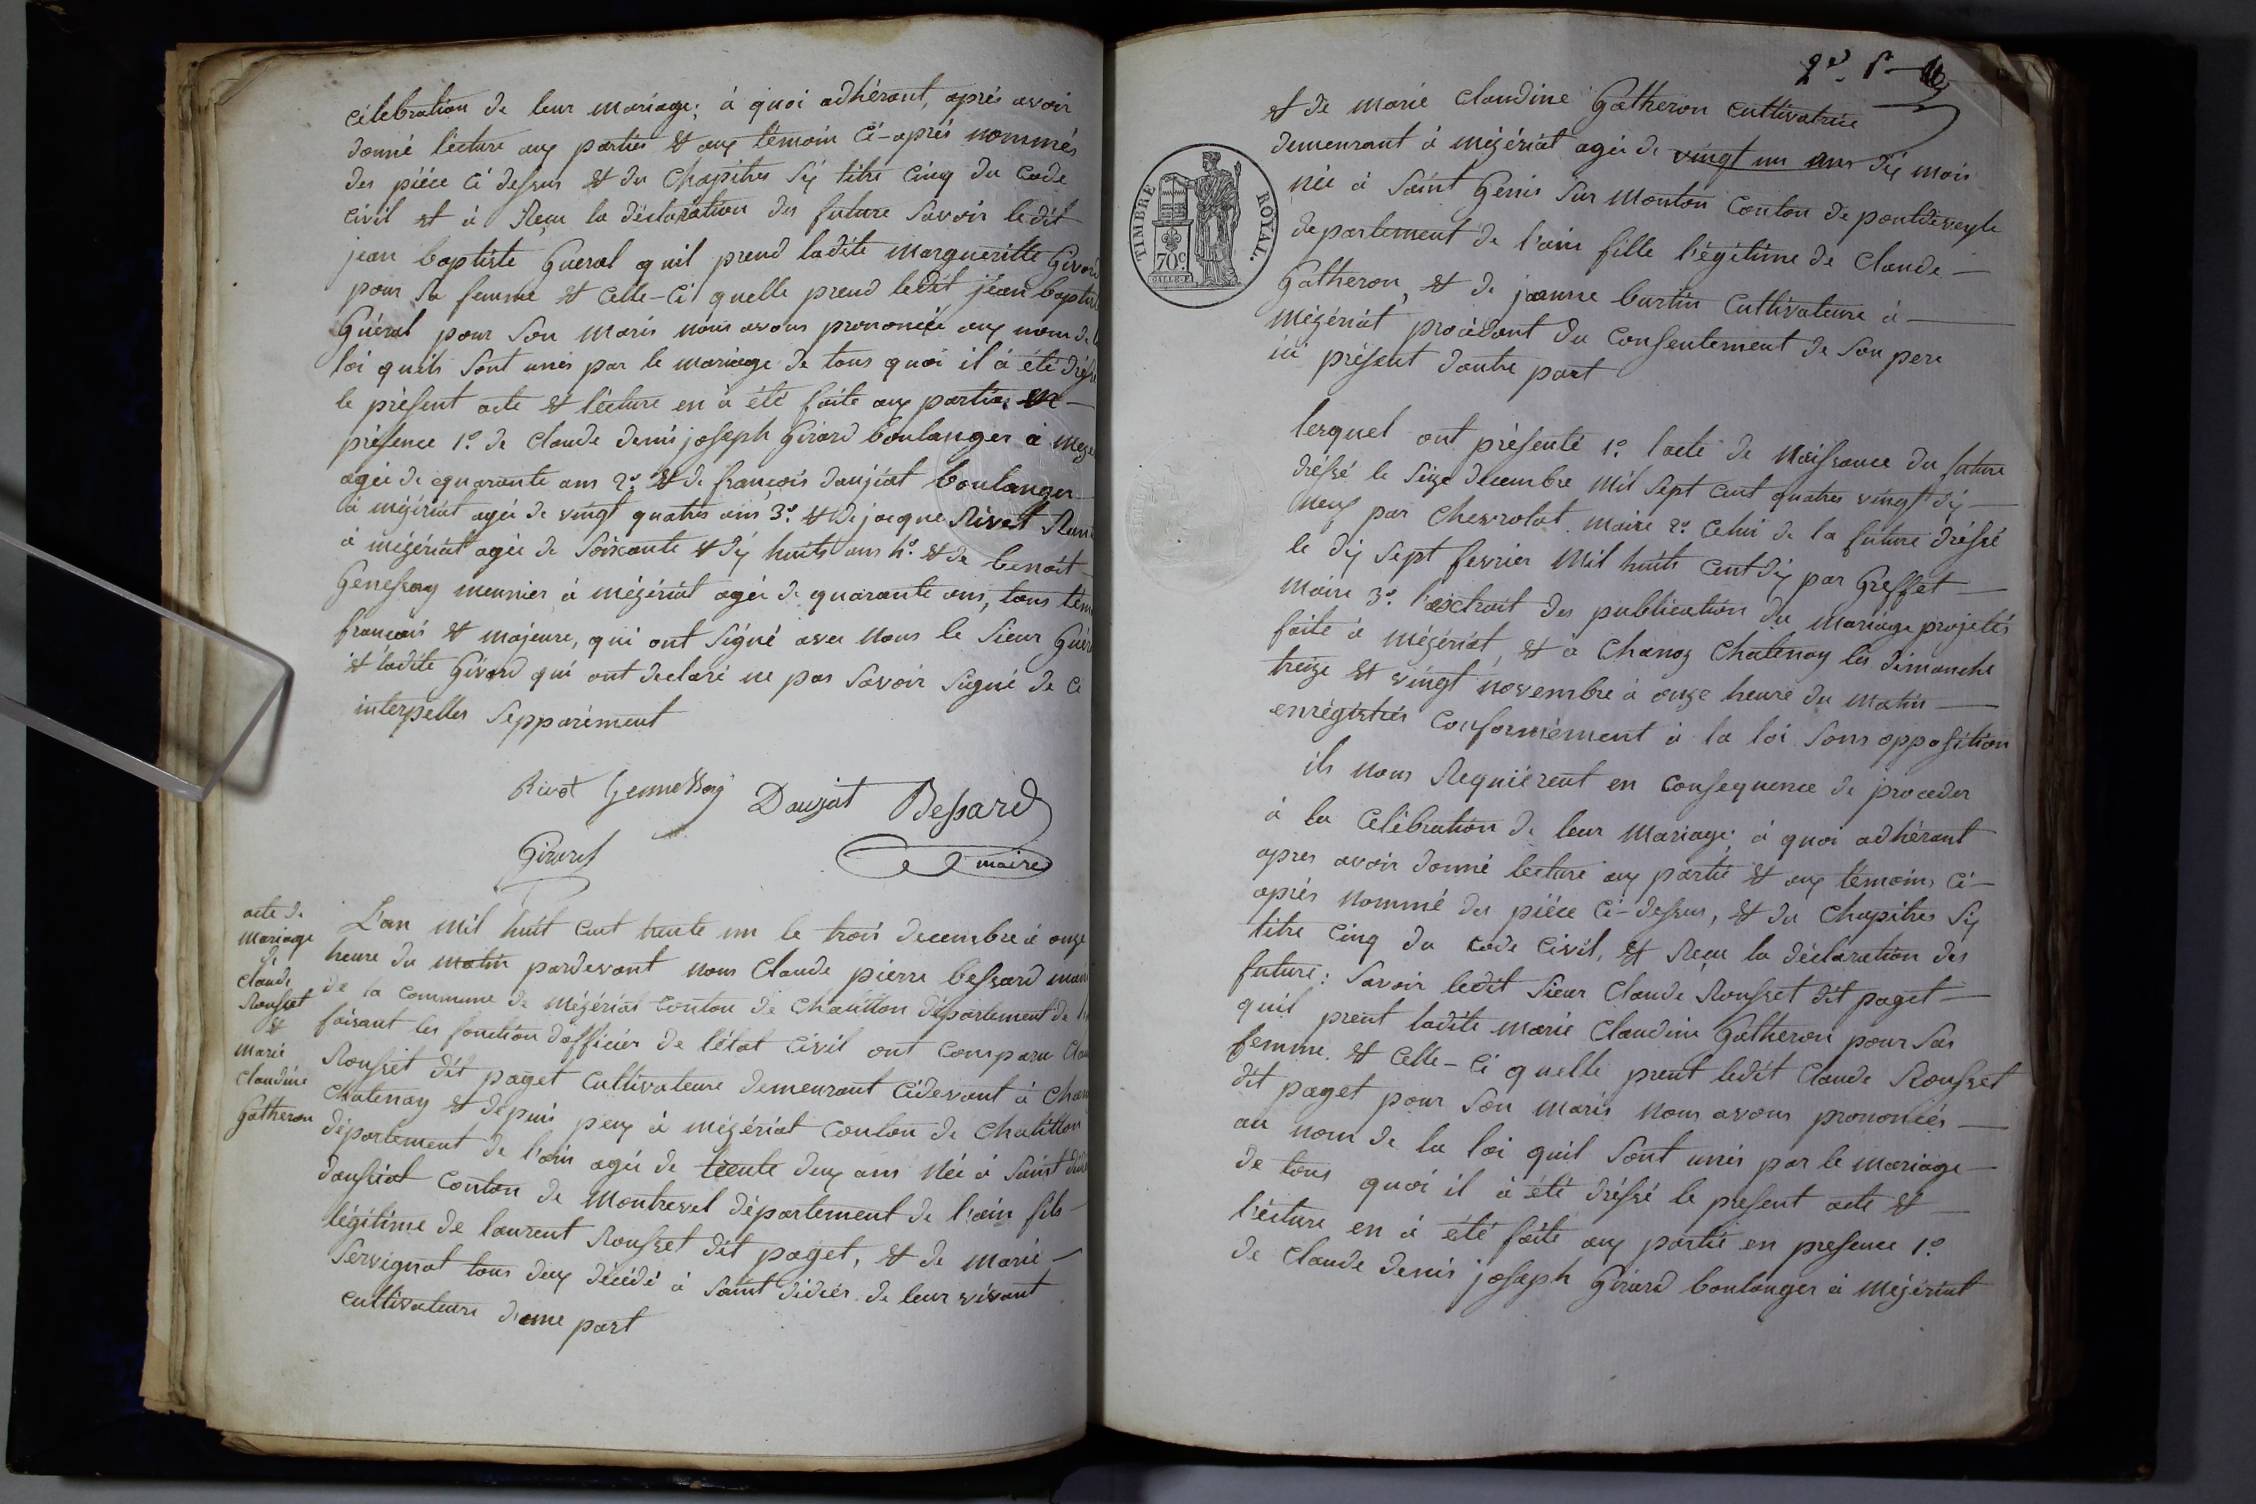 célébration de leur mariage; à quoi adhérant, après avoir
donné lécture aux parties & aux témoin ci-après nommés
des piéce ci dessus & du Chapitres Six titre Cinq du Code
civil et à Reçu la déclaration des future Savoir ledit
jean baptiste Gueral quil prend ladite Margueritte Girard
pour Sa femme & Celle-Ci quelle prend ledit jean baptiste
Guéral pour Son maris nous avons prononcée aux nom de la
loi quils Sont unis par le mariage de tous quoi il à été dréssé
le présent acte & lécture en à été faite aux parties en
présence 1º. de Claude denis joseph Girard boulanger à Meze
agée de quarante ans 2º. & de françois daujat boulanger
à mézériat agée de vingt quatres ans 3º. & de jacque Rivat
à mézériat agée de Soixante & dix huits ans 4º. & de benoit
Genessay meunier à mézériat agée de quarante ans, tous tém
français & majeure, qui ont Signé avec nous le Sieur Guér
& ladite Girard qui ont declaré ne pas Savoir Signé de ce
interpelles Sepparément
Rivat Gennessay Daujat Bessard
Girard maire
acte de
mariage
de
Claude
Rousset
&
marie
Claudine
Gatheron
L'an mil huit cent trente un le trois decembre à onze
heure du matin pardevant nous Claude pierre bessard maire
de la commune de mézériat conton de Chatillon département de l'
faisant les fonction d'officier de l'état Civil ont Comparu Clau
Rousset dit paget Cultivateure demeurant Cidevant à Chano
Chatenay & depuis peux à mézériat conton de Chatillon
département de l'ain agée de trente deux ans Née à Saint didi
daussiat Conton de Montrevel département de l'ain fils
légitime de laurent Rousset dit paget, & de marie
Servignat tous deux décédé à Saint didier de leur vivant
Cultivateure d'une part
2e. f.
& de marie Claudine Gatheron Cultivatrice
demeurant à mézériat agée de vingt un ans dix mois
née à Saint Genis Sur Monton Conton de pontdeveyle
département de l'ain fille légitime de Claude
Gatheron, & de jeanne burtin Cultivateure à
mézériat procédant du Consentement de Son pere
ici présent dautre part
TIMBRE ROYAL.
70c.
lesquel ont présenté 1º. lacte de Naissance du future
dréssé le Seize decembre mil Sept Cent quatres vingt dix
neuf par Chevrolat maire 2º. Celui de la future dréssé
le dix Sept fevrier mil huits Cent dix par Greffet
maire 3º. l'éxctrait des publication du mariage projetés
faite à mézériat, & à Chanoz Chatenay lés dimanche
treize & vingt novembre à onze heure du matin
enrégistrés Conformément à la loi Sans opposition
ils nous Requiérent en Consequence de proceder
à la Célébration de leur Mariage; à quoi adhérant
apres avoir donné lecture aux partie & aux témoins Ci-
aprés nommé des piéce Ci-dessus, & du Chapitres Six
titre Cinq du code Civil, & Reçu la déclaration des
future: Savoir ledit Sieur Claude Rousset dit paget
quil prent ladite marie Claudine Gatheron pour Sas
femme & Celle-Ci quelle prent ledit Claude Rousset
dit paget pour Son maris nous avons prononcés
au nom de la loi quil Sont unis par le mariage
de tous quoi il à été dréssé le present acte &
lécture en à été faite aux partie en presence 1º
de Claude denis joseph Girard boulanger à mézériat